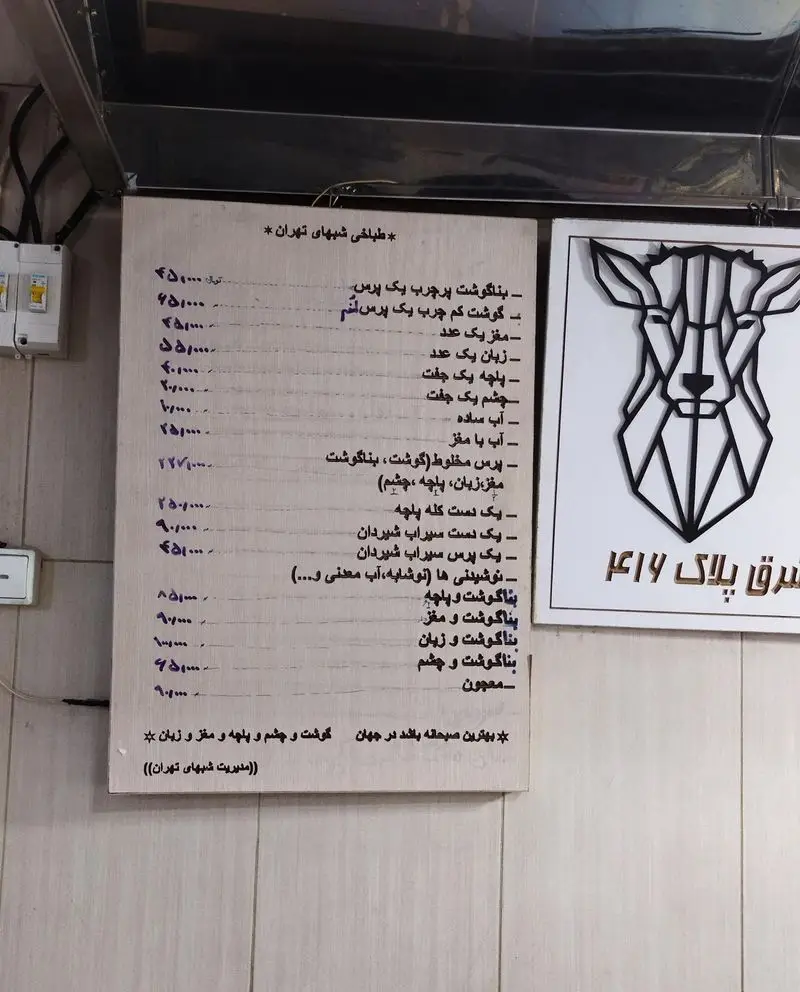 * طباخی شبهای تهران *
_ بناگوشت پرچرب یک پرس ۴۵,۰۰۰ تومان
_ گوشت کم چرب یک پرس لُخم ۶۵,۰۰۰
_ مغز یک عدد ۴۵,۰۰۰
_ زبان یک عدد ۵۵,۰۰۰
_ پاچه یک جفت ۴۰,۰۰۰
_ چشم یک جفت ۲۰,۰۰۰
_ آب ساده ۱۰,۰۰۰
_ آب با مغز ۲۵,۰۰۰
_ پرس مخلوط(گوشت، بناگوشت ۲۲۷,۰۰۰
مغز،زبان، پاچه ،چشم)
_ یک دست کله پاچه ۲۵۰,۰۰۰
_ یک دست سیراب شیردان ۹۰,۰۰۰
_ یک پرس سیراب شیردان ۴۵,۰۰۰
_ نوشیدنی ها (نوشابه،آب معدنی و...)
بناگوشت و پاچه ۸۵,۰۰۰
بناگوشت و مغز ۹۰,۰۰۰
بناگوشت و زبان ۱۰۰,۰۰۰
بناگوشت و چشم ۶۵,۰۰۰
_ معجون ۹۰,۰۰۰
* بهترین صبحانه باشد در جهان گوشت و چشم و پاچه و مغز و زبان *
((مدیریت شبهای تهران))
شرق پلاک ۴۱۶